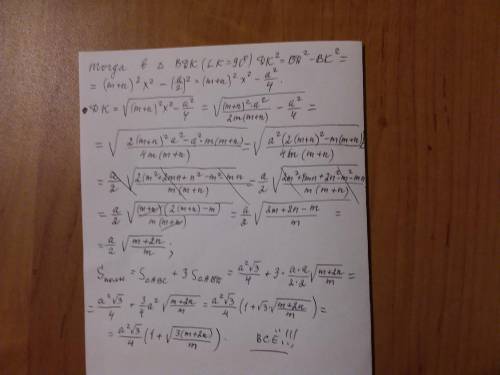 Тогда в △ BDK (∠K=90°) DK² = BD² − BK² =
= (m+n)²x² − (a/2)² = (m+n)²x² − a²/4.
DK = √((m+n)²x² − a²/4) = √((m+n)²·a²/2m(m+n) − a²/4) =
= √(2(m+n)²a² − a²·m(m+n)/4m(m+n)) = √(a²(2(m+n)² − m(m+n))/4m(m+n))
= a/2 √(2(m²+2mn+n²−m²−mn/m(m+n)) = a/2 √(2m²+4mn+2n²−m²−mn/m(m+n))
= a/2 √((m+n)(2(m+n)−m)/m(m+n)) = a/2 √(2m+2n−m/m) =
= a/2 √(m+2n/m);
Sполн = S△ABC + 3S△ABD = a²√3/4 + 3·a·a/2·2 √(m+2n/m) =
= a²√3/4 + 3/4 a² √(m+2n/m) = a²√3/4 (1+√3·√(m+2n/m)) =
= a²√3/4 (1+√(3(m+2n)/m)). ВСЁ!!!